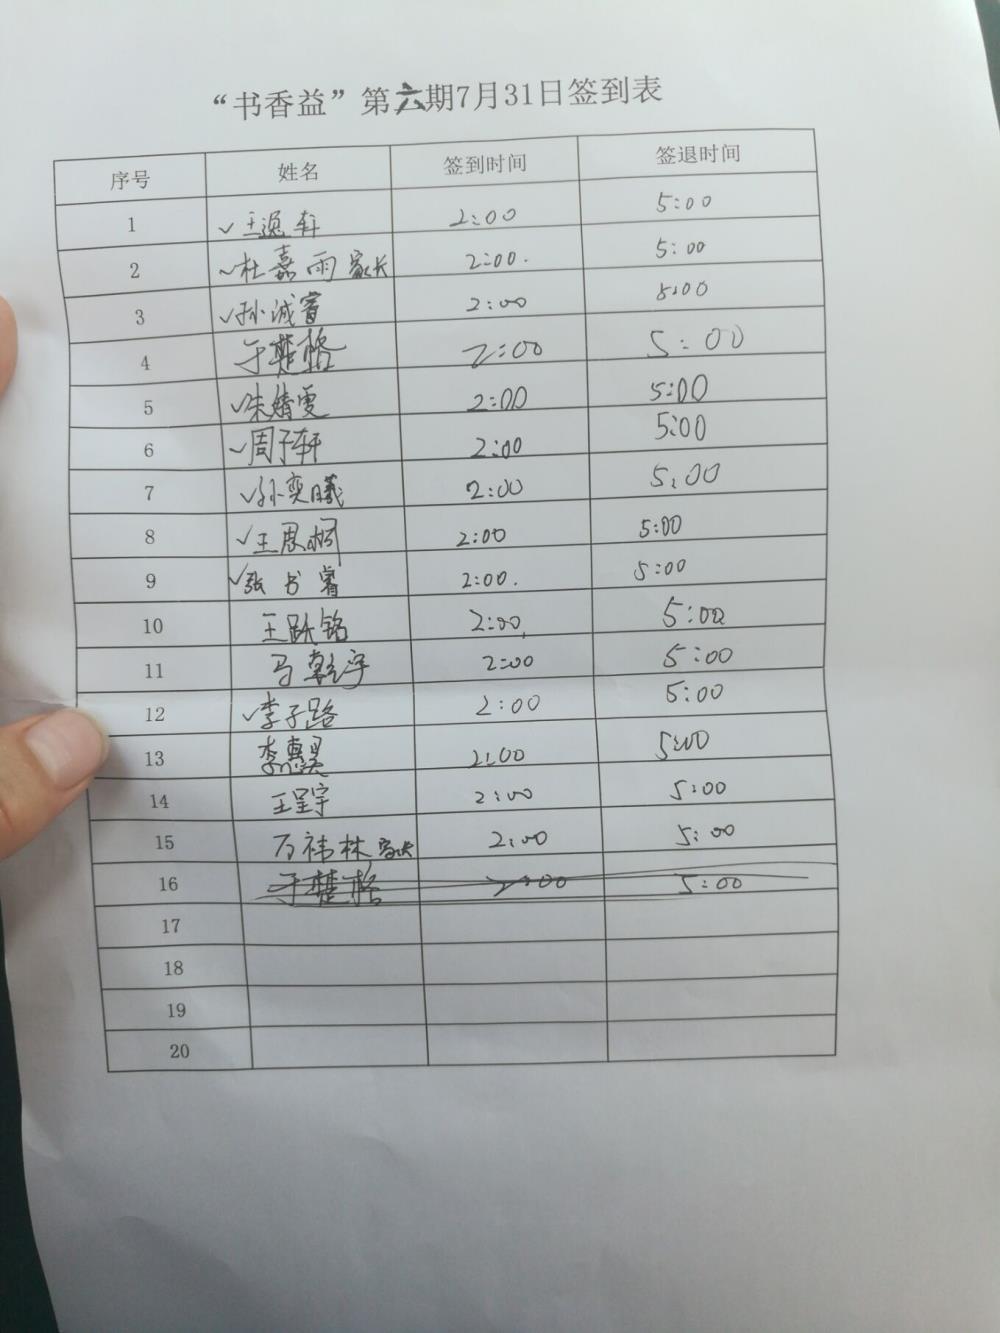 “书香益”第六期7月31日签到表
序号 姓名 签到时间 签退时间
1 ✓王逸轩 2:00 5:00
2 ✓杜嘉雨家长 2:00. 5:00
3 ✓孙诚睿 2:00 5:00
4 于楚格 2:00 5:00
5 ✓朱婧雯 2:00 5:00
6 ✓周子轩 2:00 5:00
7 ✓孙奕曦 2:00 5:00
8 ✓王思桐 2:00 5:00
9 ✓张书睿 2:00. 5:00
10 王跃铭 2:00 5:00
11 马乾宇 2:00 5:00
12 ✓李子路 2:00 5:00
13 李惠昊 2:00 5:00
14 王呈宇 2:00 5:00
15 万祎林家长 2:00 5:00
16 于楚格 2:00 5:00
17
18
19
20